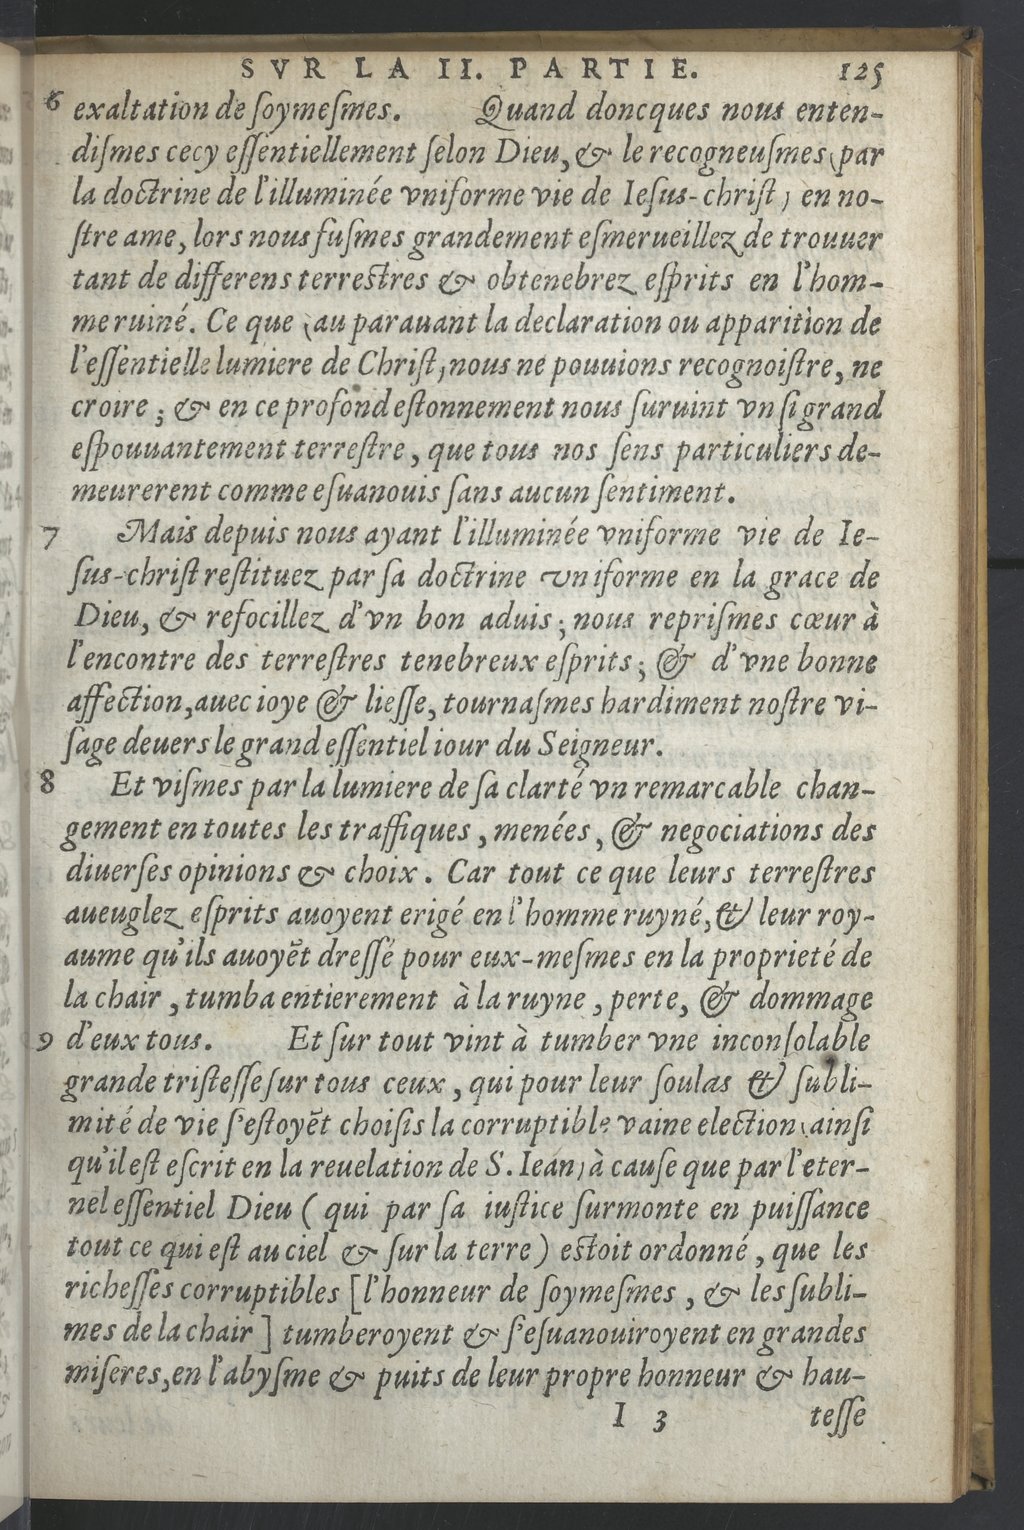 SVR LA II. PARTIE. 125
6 exaltation de ſoymeſmes. Quand doncques nous enten-
diſmes cecy eſſentiellement ſelon Dieu, & le recogneuſmes (par
la doctrine de l'illuminée vniforme vie de Ieſus-chriſt) en no-
ſtre ame, lors nous fuſmes grandement eſmerueillez de trouuer
tant de differens terrestres & obtenebrez eſprits en l'hom-
me ruiné. Ce que (au parauant la declaration ou apparition de
l'eſſentielle lumiere de Chriſt) nous ne pouuions recognoiſtre, ne
croire ; & en ce profond eſtonnement nous ſuruint vn ſi grand
eſpouuantement terreſtre, que tous nos ſens particuliers de-
meurerent comme eſuanouis ſans aucun ſentiment.
7 Mais depuis nous ayant l'illuminée vniforme vie de Ie-
ſus-chriſt reſtituez par ſa doctrine vniforme en la grace de
Dieu, & refocillez d'vn bon aduis ; nous repriſmes cœur à
l'encontre des terreſtres tenebreux eſprits ; & d'vne bonne
affection, auec ioye & lieſſe, tournaſmes hardiment noſtre vi-
ſage deuers le grand eſſentiel iour du Seigneur.
8 Et viſmes par la lumiere de ſa clarté vn remarcable chan-
gement en toutes les traffiques, menées, & negociations des
diuerſes opinions & choix. Car tout ce que leurs terreſtres
aueuglez eſprits auoyent erigé en l'homme ruyné, & leur roy-
aume qu'ils auoyēt dreſſé pour eux-meſmes en la proprieté de
la chair, tumba entierement à la ruyne, perte, & dommage
9 d'eux tous. Et ſur tout vint à tumber vne inconſolable
grande triſteſſe ſur tous ceux, qui pour leur ſoulas & ſubli-
mité de vie s'eſtoyēt choiſis la corruptible vaine election (ainſi
qu'il eſt eſcrit en la reuelation de S. Iean) à cauſe que par l'eter-
nel eſſentiel Dieu ( qui par ſa iuſtice ſurmonte en puiſſance
tout ce qui eſt au ciel & ſur la terre) estoit ordonné, que les
richeſſes corruptibles [l'honneur de ſoymeſmes, & les ſubli-
mes de la chair ] tumberoyent & s'eſuanouiroyent en grandes
miſeres, en l'abyſme & puits de leur propre honneur & hau-
I 3 teſſe